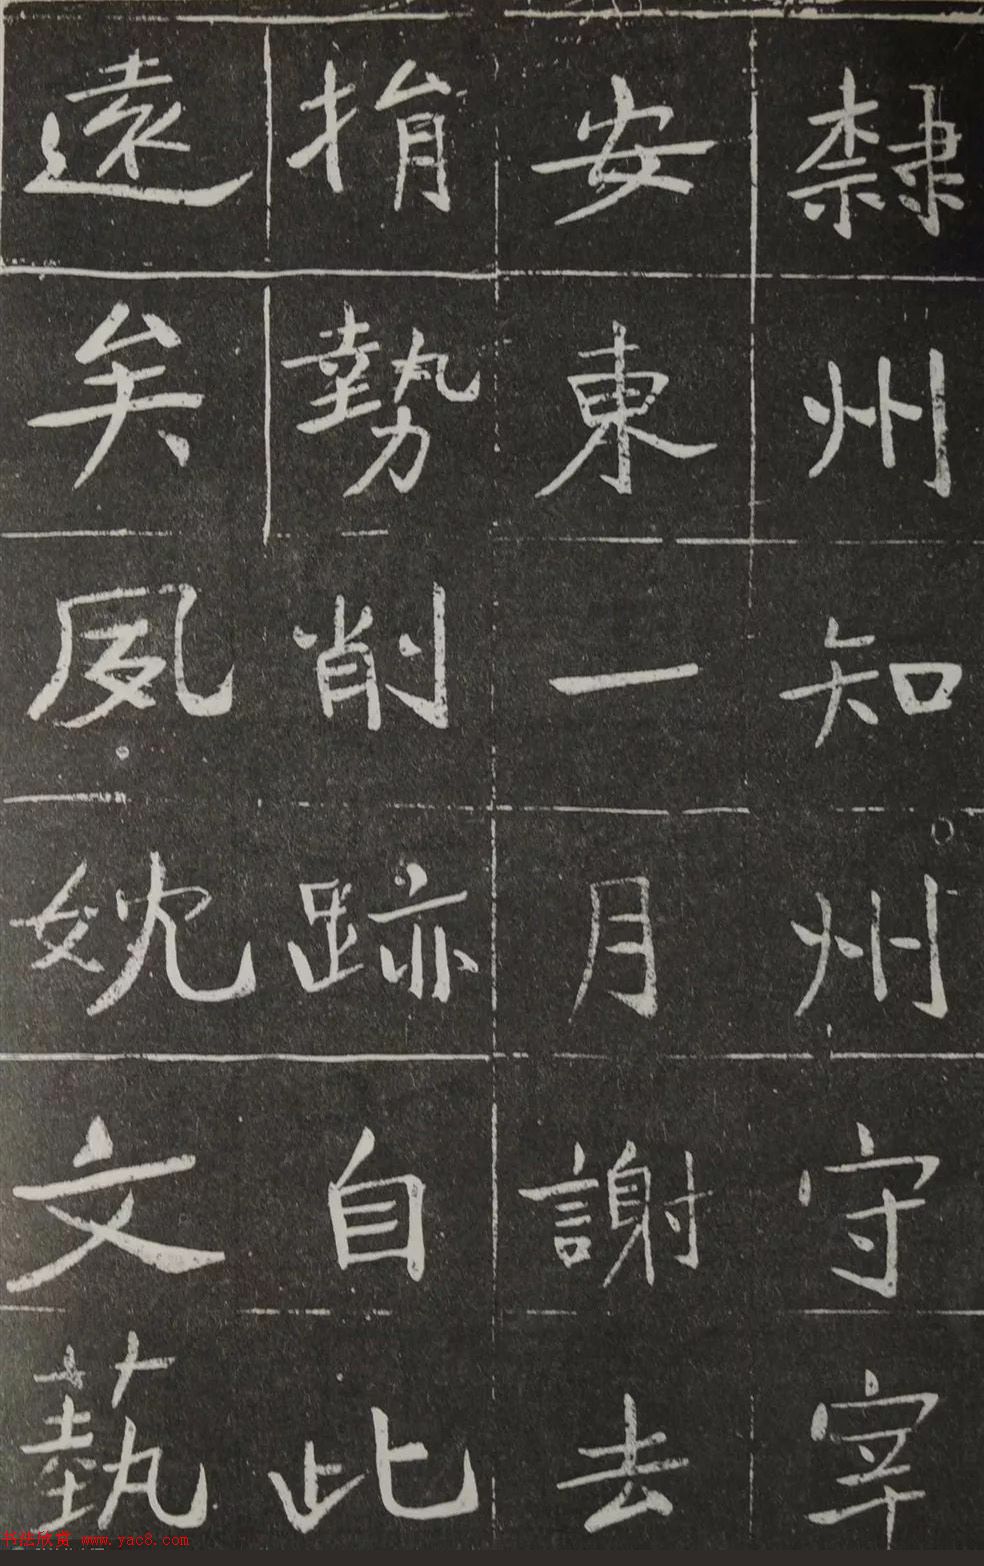 隸州知州守宰
安東一月謝去
捎勢削跡自此
遠矣夙㛂文藝
书法欣赏 www.yac8.com